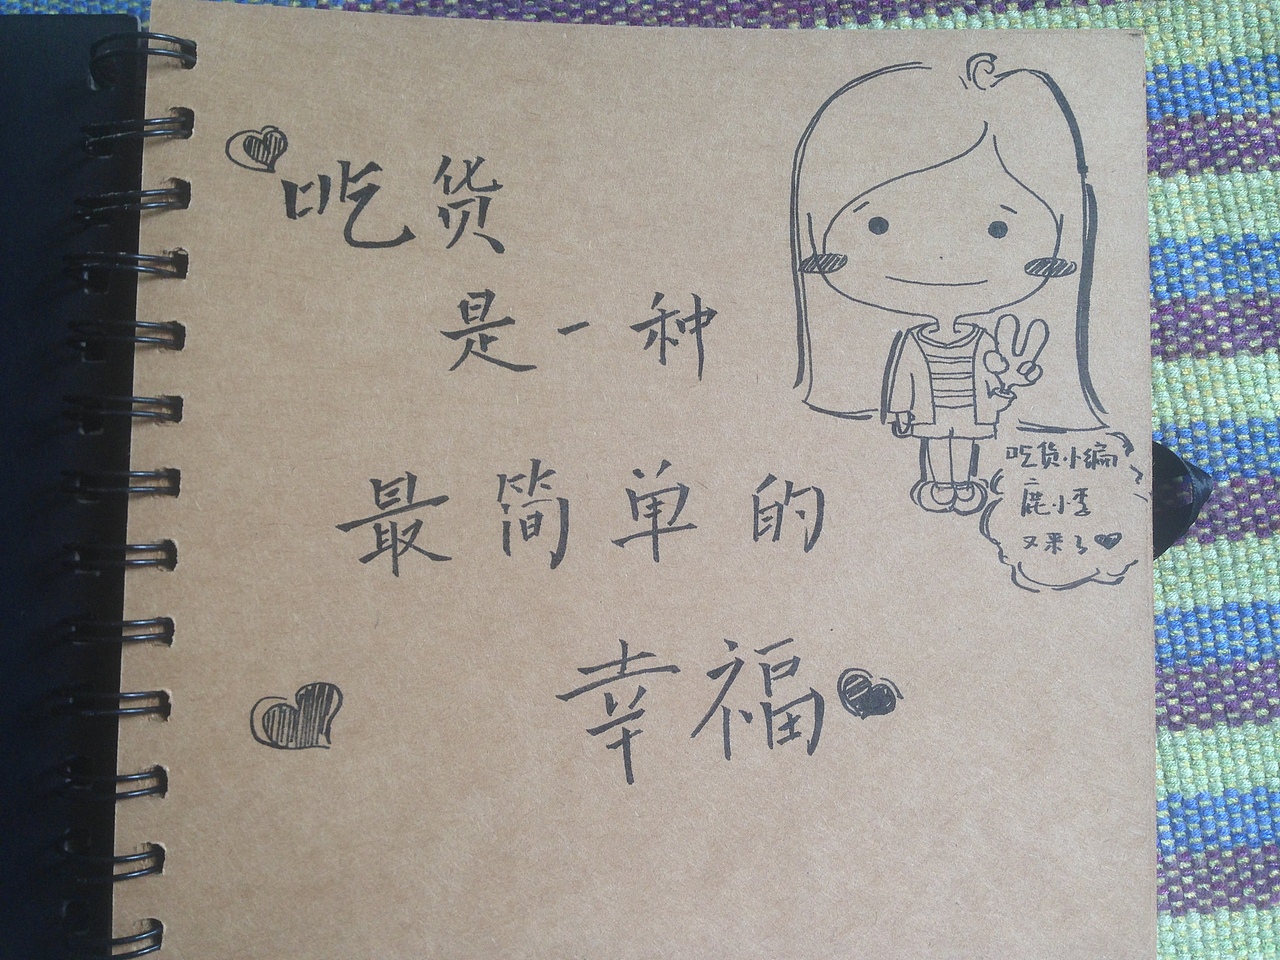 吃货
是一种
最简单的
幸福
吃货小编
鹿小季
又来了